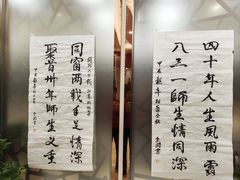 四十年人生風雨露
八三一師生情同深
同窗两载手足情深
聚首卅年師生义重